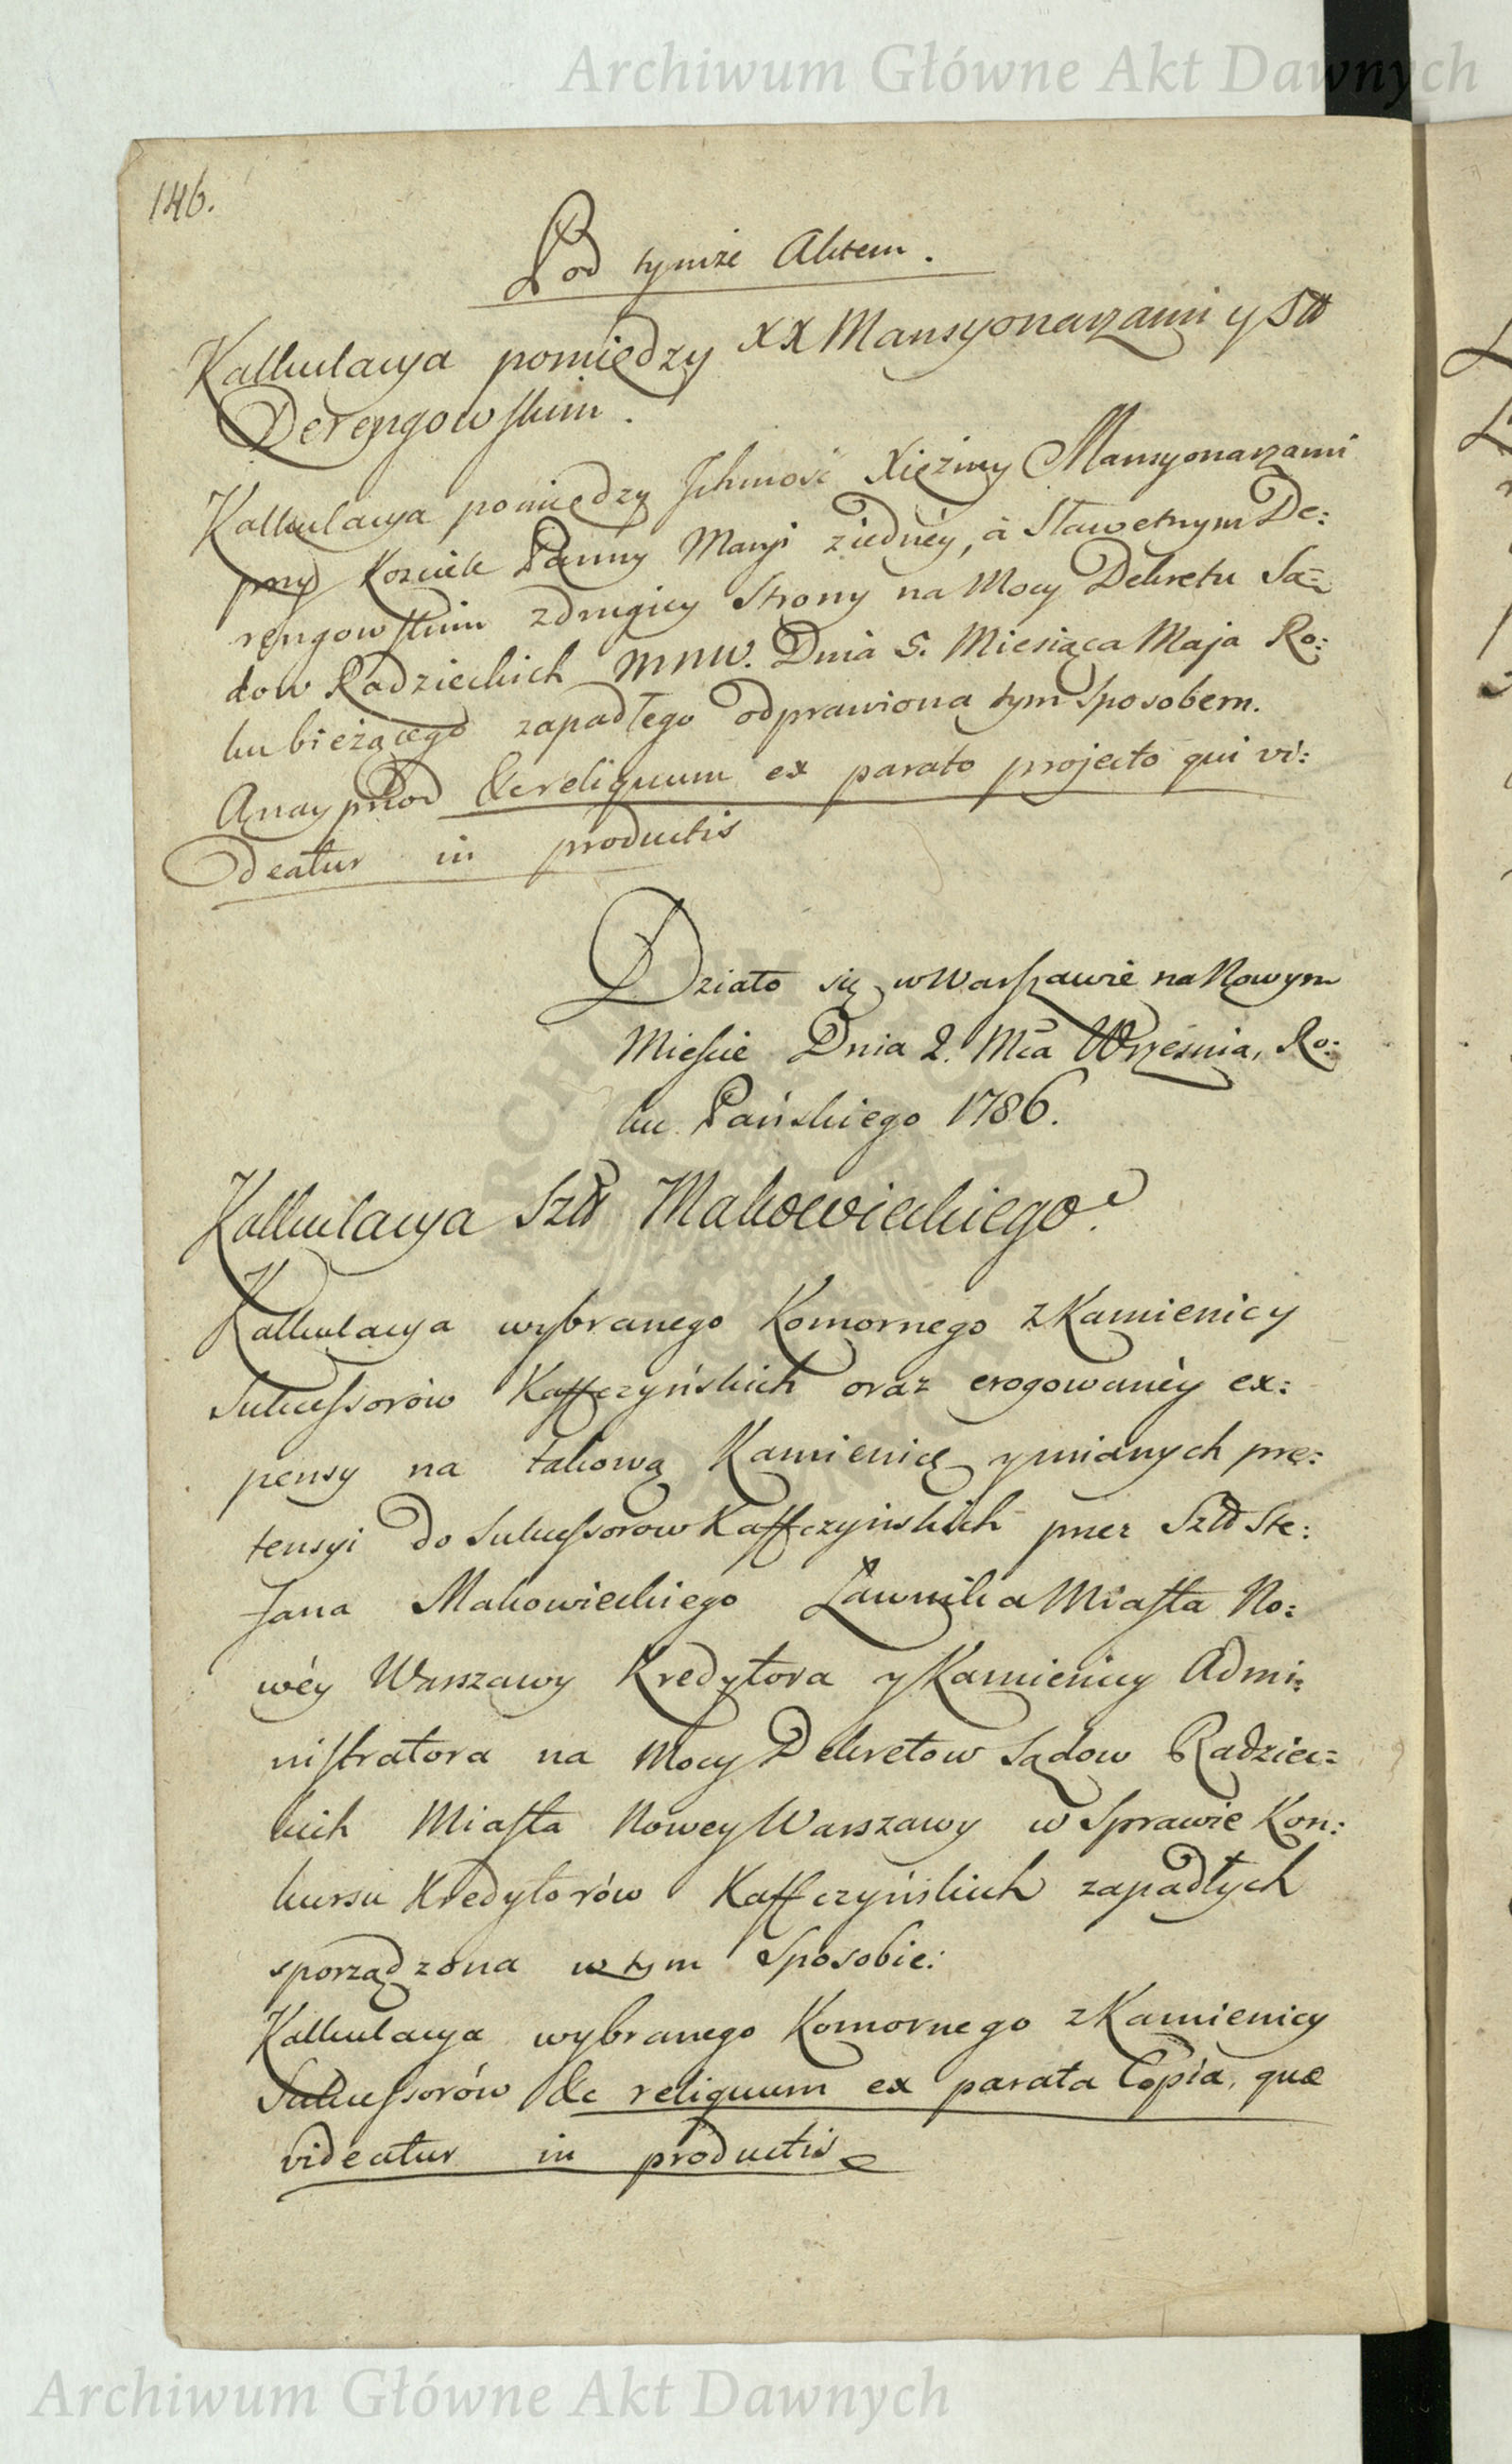 Archiwum Główne Akt Dawnych
146.
Pod tymże Aktem.
Kalkulacya pomiędzy XX Mansyonarzami y Sł
Derengowskim.
Kalkulacya pomiędzy Jchmość Xiężmy Mansyonarzami
przy Kosciele Panny Maryi ziednéy, à Sławetnym De:
rengowskim zdrugiey Strony na Mocy Dekretu Są:
dow Radzieckich MNW. Dnia 5. Miesiąca Maja Ro:
ku bieżącego zapadłego odprawiona tym Sposobem.
&c reliquum ex parato projecto qui vi:
deatur in productis
Działo się w Warszawie na Nowym
Mieście Dnia 2. Mca Września, Ro:
ku Pańskiego 1786.
Kalkulacya Szł Makowieckiego.
Kalkulacya wybranego Komornego z Kamienicy
Sukcessorów Kaffczyńskich oraz erogowanéy ex:
pensy na takową Kamienicę y mianych pre:
tensyi do Sukcessorow Kaffczyńskich przez Szł Ste:
fana Makowieckiego Ławnika Miasta No:
wéy Warszawy Kredytora y Kamienicy Admi:
nistratora na Mocy Dekretow Sądow Radziec:
kich Miasta Nowey Warszawy w Sprawie Kon:
kursu Kredytorów Kaffczyńskich zapadłych
sporządzona w tym Sposobie:
Kalkulacya wybranego Komornego z Kamienicy
Sukcessorów &c reliquum ex parata Copia, quæ
videatur in productis
Archiwum Główne Akt Dawnych